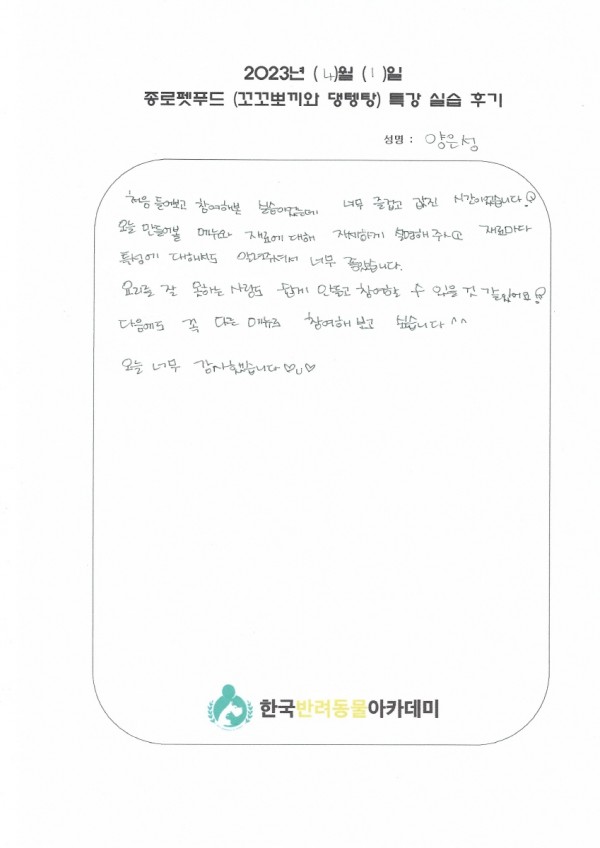 2023년 (4)월 (1)일
종로펫푸드 (꼬꼬뽀끼와 댕텡탕) 특강 실습 후기
성명 : 양은성
처음 들어보고 참여해본 실습이었는데 너무 즐겁고 값진 시간이었습니다!
오늘 만들어볼 메뉴와 재료에 대해 자세하게 설명해주시고 재료마다
특성에 대해서도 알려주셔서 너무 좋았습니다.
요리를 잘 못하는 사람도 쉽게 만들고 참여할 수 있을 것 같았어요!
다음에도 꼭 다른 메뉴로 참여해보고 싶습니다 ^^
오늘 너무 감사했습니다 ♡u♡
한국반려동물아카데미